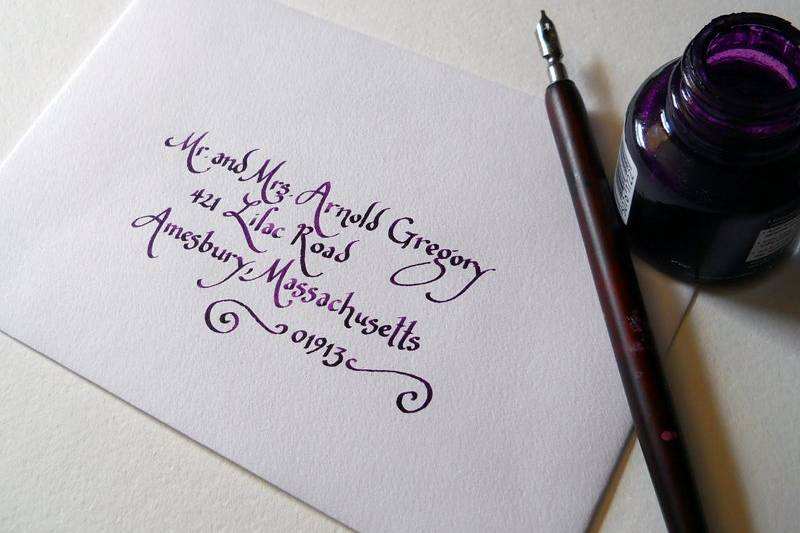 Mr. and Mrs. Arnold Gregory
421 Lilac Road
Amesbury, Massachusetts
01913